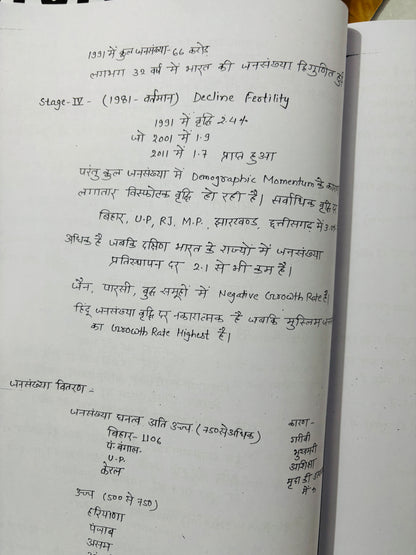 1991 में कुल जनसंख्या - 66 करोड़
लगभग 32 वर्ष में भारत की जनसंख्या द्विगुणित हुई
Stage-IV - (1981 - वर्तमान) Decline Feotility
1991 में वृद्धि 2.4%
जो 2001 में 1.9
2011 में 1.7 प्राप्त हुआ
परंतु कुल जनसंख्या में Demographic Momentum के कारण
लगातार विस्फोटक वृद्धि हो रही है। सर्वाधिक वृद्धि दर
बिहार, U.P, RJ, M.P., झारखण्ड, छत्तीसगढ़ में 3.
अधिक है जबकि दक्षिण भारत के राज्यों में जनसंख्या
प्रतिस्थापन दर 2.1 से भी कम है।
जैन, पारसी, बुद्ध समूहों में Negative Growth Rate है।
हिंदू जनसंख्या वृद्धि दर नकारात्मक है जबकि मुस्लिम
का Growth Rate Highest है।
जनसंख्या वितरण -
जनसंख्या घनत्व अति उच्च (750 से अधिक)
बिहार - 1106
पं. बंगाल -
U.P.
केरल
कारण -
गरीबी
भुखमरी
अशिक्षा
मृत्यु दी
में
उच्च (500 से 750)
हरियाणा
पंजाब
असम